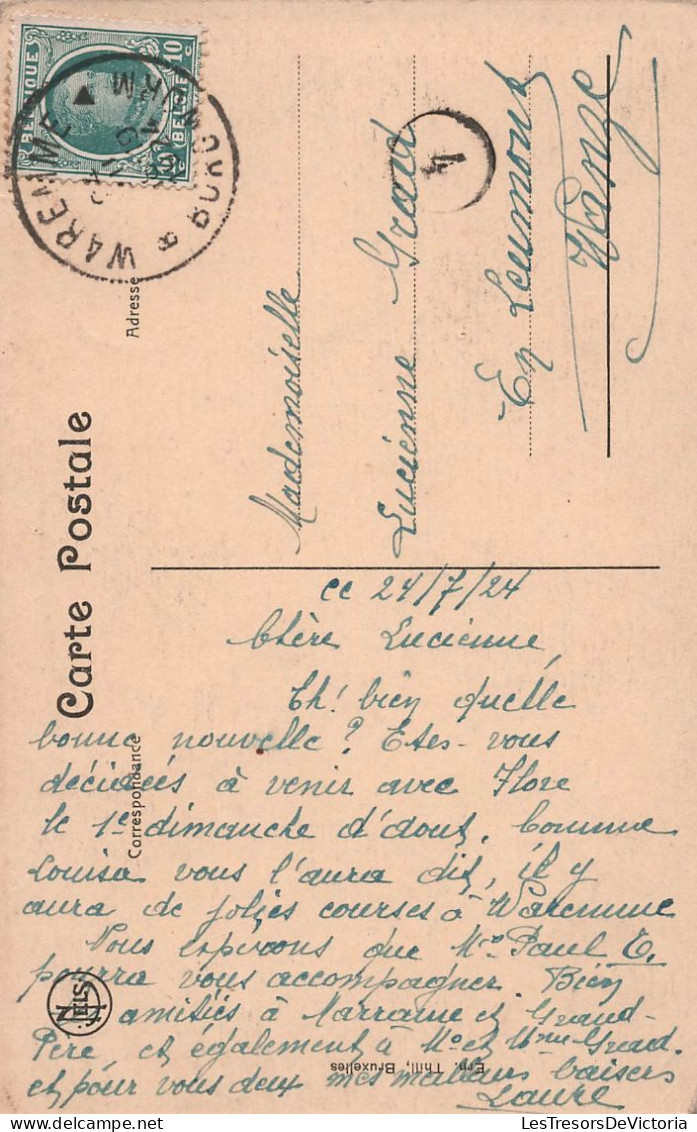 BELGIQUE BELGIË
10 c
WAREMME
BORGWORM
4
Carte Postale
Adresse
Correspondance
Mademoiselle
Lucienne Grad
En Leumont
Wanze
ce 24/7/24
Chère Lucienne,
Eh! bien quelle
bonne nouvelle? Etes-vous
décidées à venir avec Flore
le 1e dimanche d'aout, Comme
Louisa vous l'aura dit, il y
aura de jolies courses à Waremme
Nous espérons que Mr Paul E.
pourra vous accompagner Bien
amitiés à Marraine et Grand-
Père, et également à Mr et Mme Grad.
et pour vous deux mes meilleurs baisers
Laure
NELS
Ern. Thill, Bruxelles
LesTresorsDeVictoria